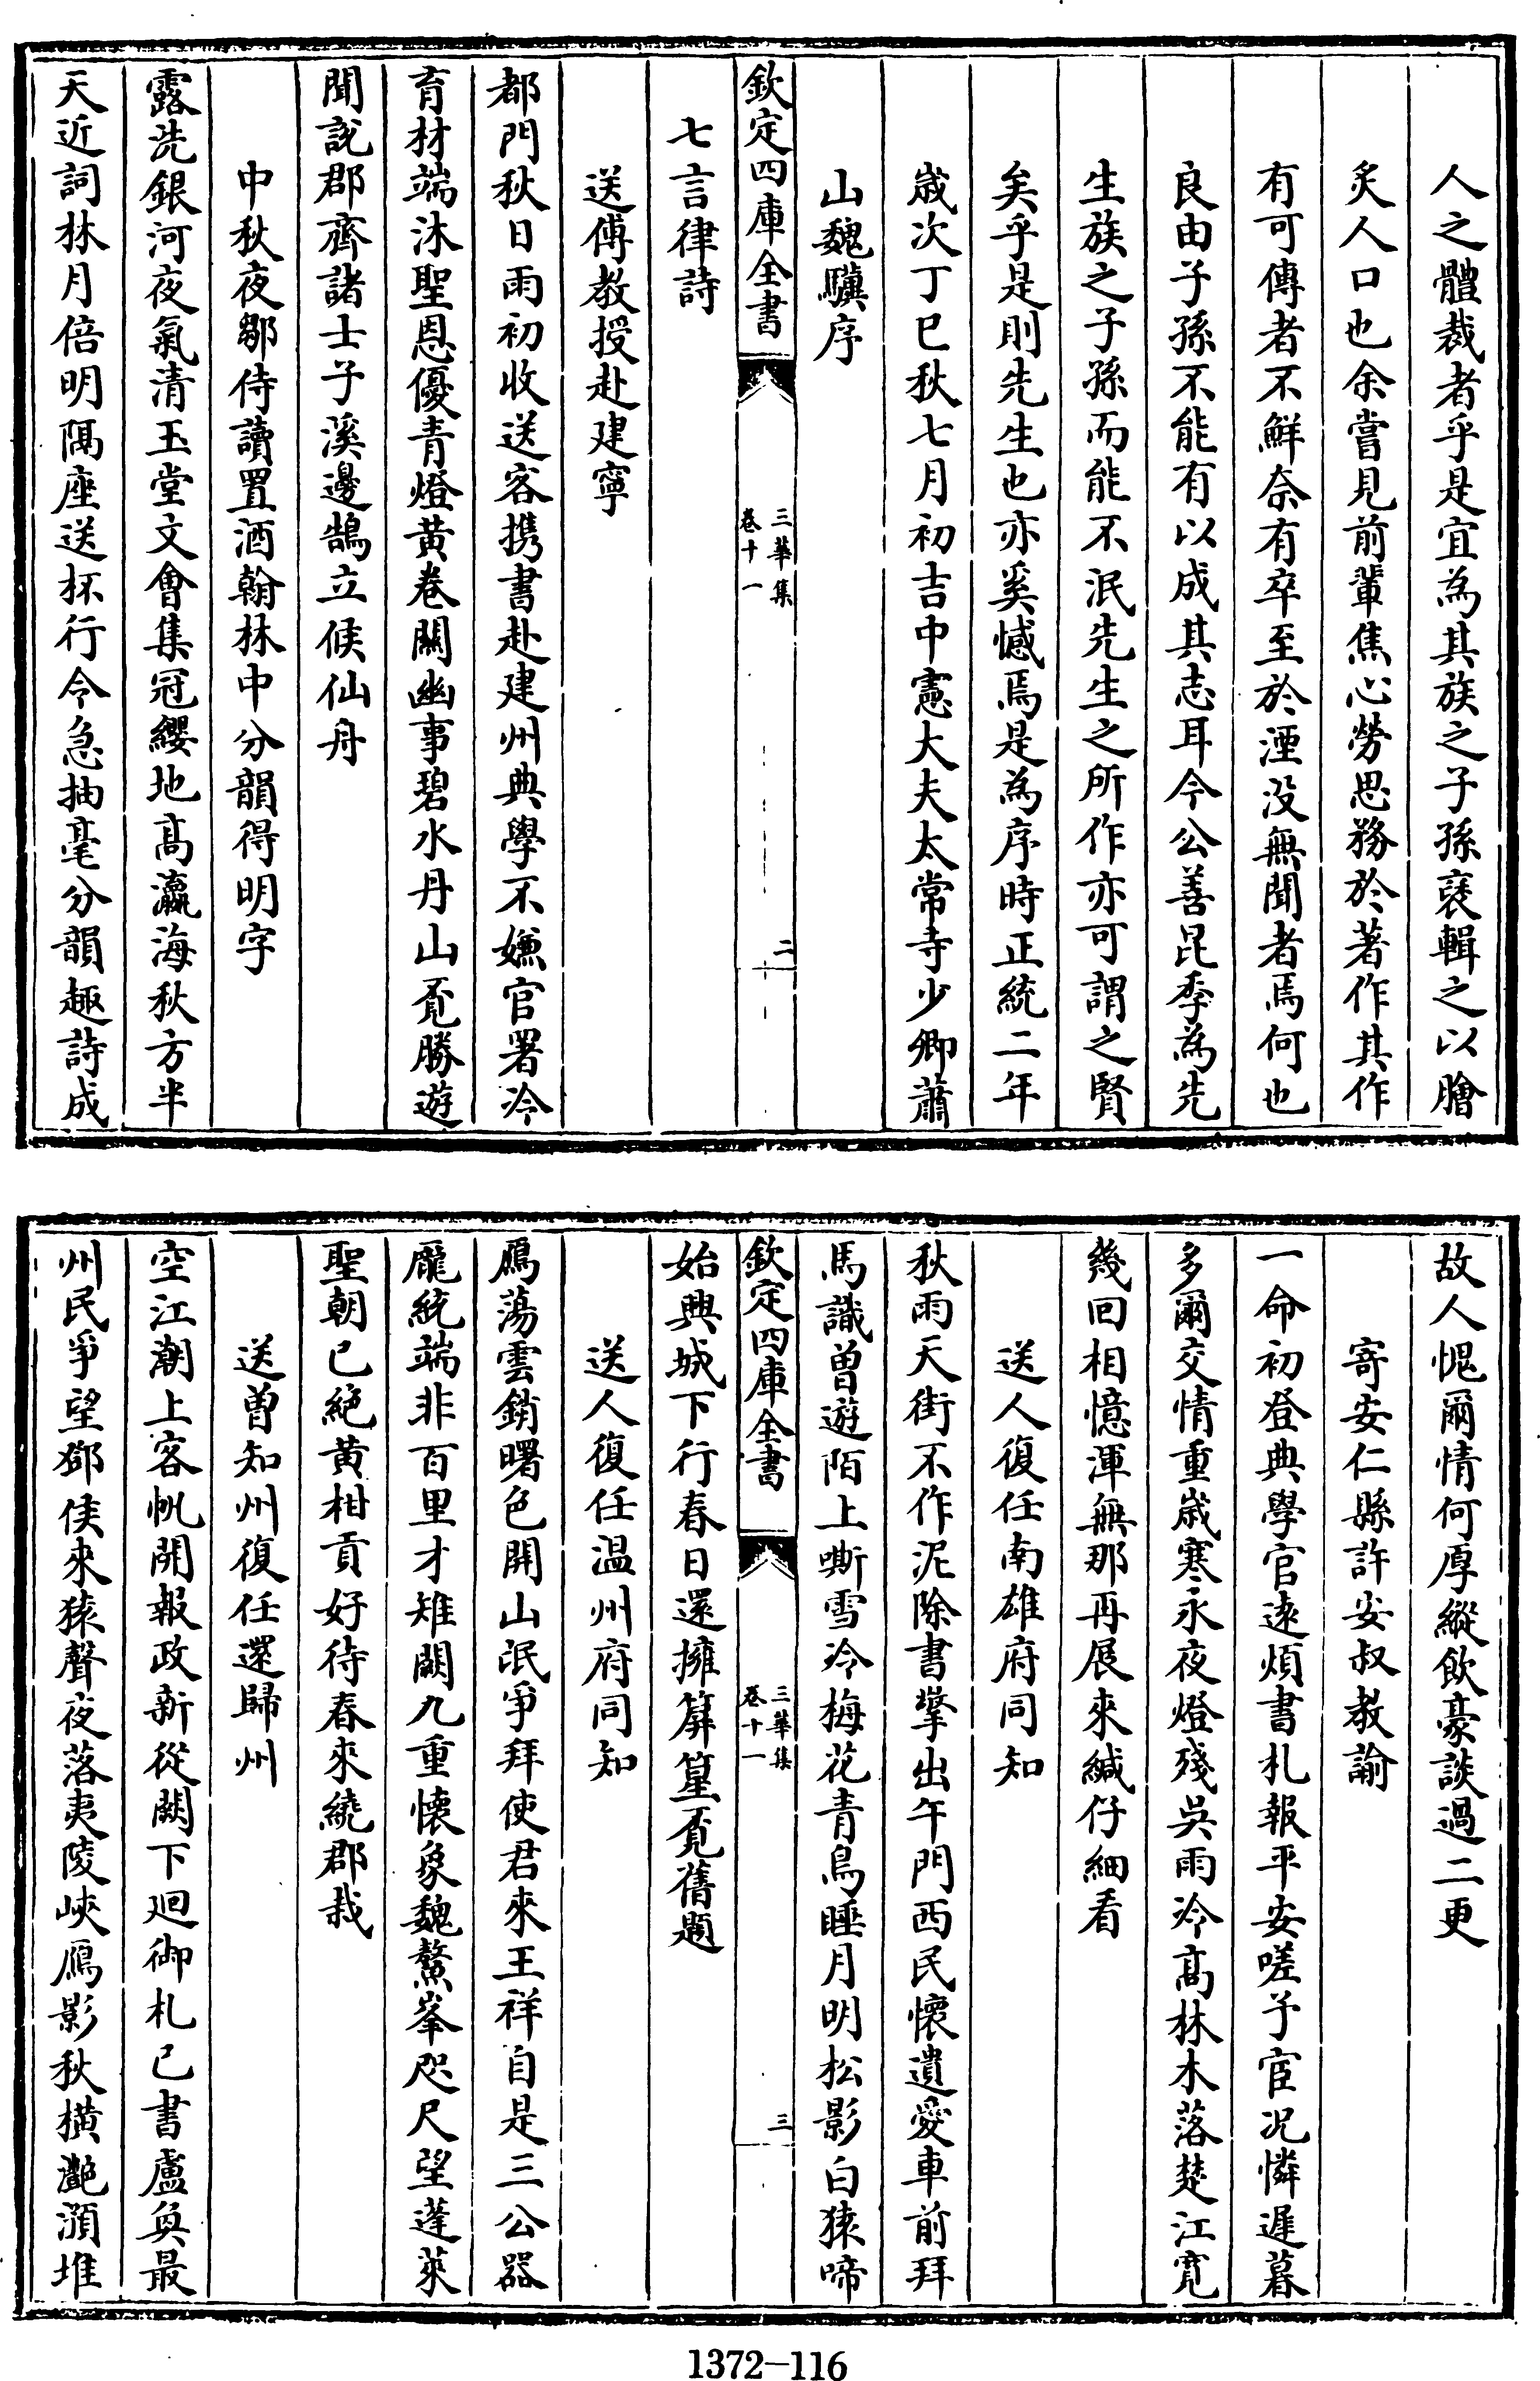 人之體裁者乎是宜為其族之子孫裒輯之以膾
炙人口也余嘗見前輩焦心勞思務於著作其作
有可傳者不鮮奈有卒至於湮没無聞者焉何也
良由子孫不能有以成其志耳今公善昆季為先
生族之子孫而能不泯先生之所作亦可謂之賢
矣乎是則先生也亦奚憾焉是為序時正統二年
歲次丁巳秋七月初吉中憲大夫太常寺少卿蕭
山魏驥序
欽定四庫全書
三華集
卷十一
二
七言律詩
送傅教授赴建寧
都門秋日雨初收送客携書赴建州典學不嫌官署冷
育材端沐聖恩優青燈黄卷關幽事碧水丹山覔勝遊
聞説郡齋諸士子溪邊鵠立候仙舟
中秋夜鄒侍讀置酒翰林中分韻得明字
露洗銀河夜氣清玉堂文會集冠纓地高瀛海秋方半
天近詞林月倍明隔座送杯行令急抽毫分韻趣詩成
故人愧爾情何厚縱飲豪談過二更
寄安仁縣許安叔教諭
一命初登典學官遠煩書札報平安嗟予宦况憐遲暮
多爾交情重歲寒永夜燈殘吳雨冷高林木落楚江寛
幾回相憶渾無那再展來緘仔細看
送人復任南雄府同知
秋雨天街不作泥除書擎出午門西民懷遺愛車前拜
馬識曽遊陌上嘶雪冷梅花青鳥睡月明松影白猿啼
始興城下行春日還擁屏篁覔舊題
欽定四庫全書
三華集
卷十一
三
送人復任温州府同知
鴈蕩雲銷曙色開山氓爭拜使君來王祥自是三公器
龎統端非百里才雉闕九重懷象魏鰲峯咫尺望蓬萊
聖朝已絶黄柑貢好待春來繞郡栽
送曽知州復任還歸州
空江潮上客帆開報政新從闕下迴御札已書盧奐最
州民爭望鄧侯來猿聲夜落夷陵峽鴈影秋横灎澦堆
1372—116